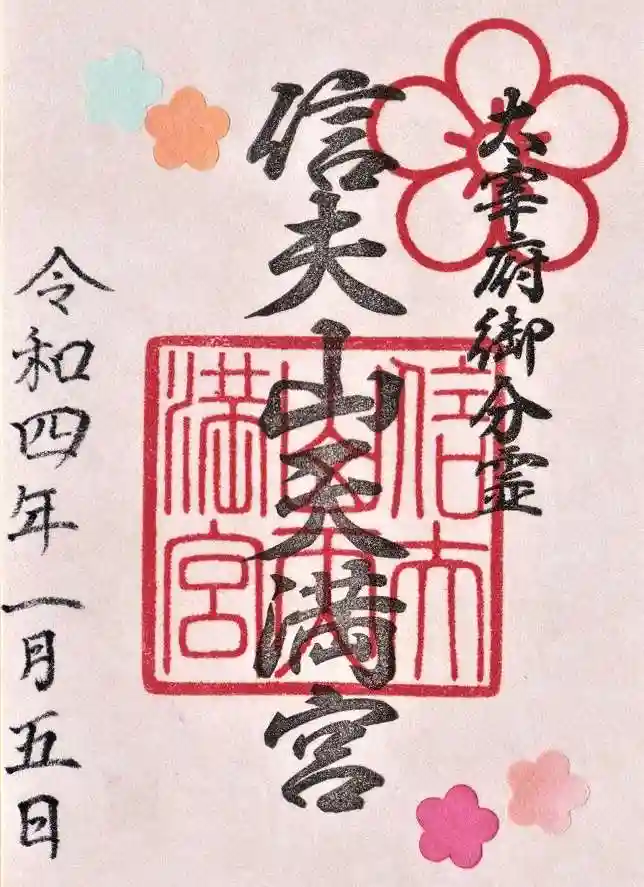 大宰府御分霊
信夫山天満宮
信夫山天満宮
令和四年一月五日